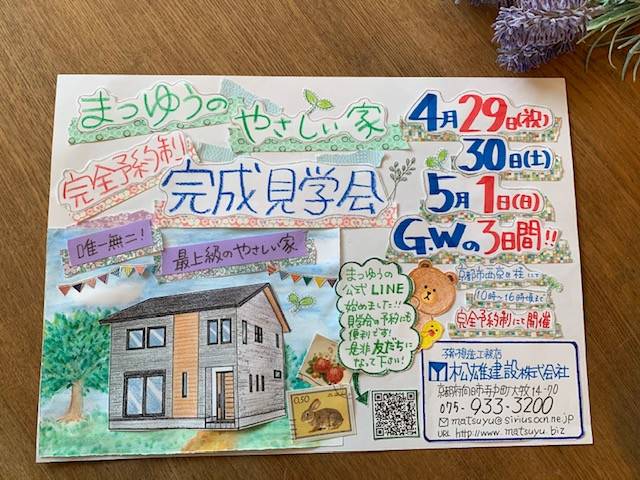 まつゆうの
やさしい家
完全予約制
完成見学会
唯一無二!
最上級のやさしい家
4月29日(祝)
30日(土)
5月1日(日)
G.Wの3日間!!
京都市西京区桂にて
10時〜16時頃まで
完全予約制にて開催
まつゆうの
公式LINE
始めました!!
見学会の予約にも
便利です!
是非友だちに
なって下さい!
0,50
松雄建設株式会社
075-933-3200
matsuyu@sirius.ocn.ne.jp
URL http://www.matsuyu.biz